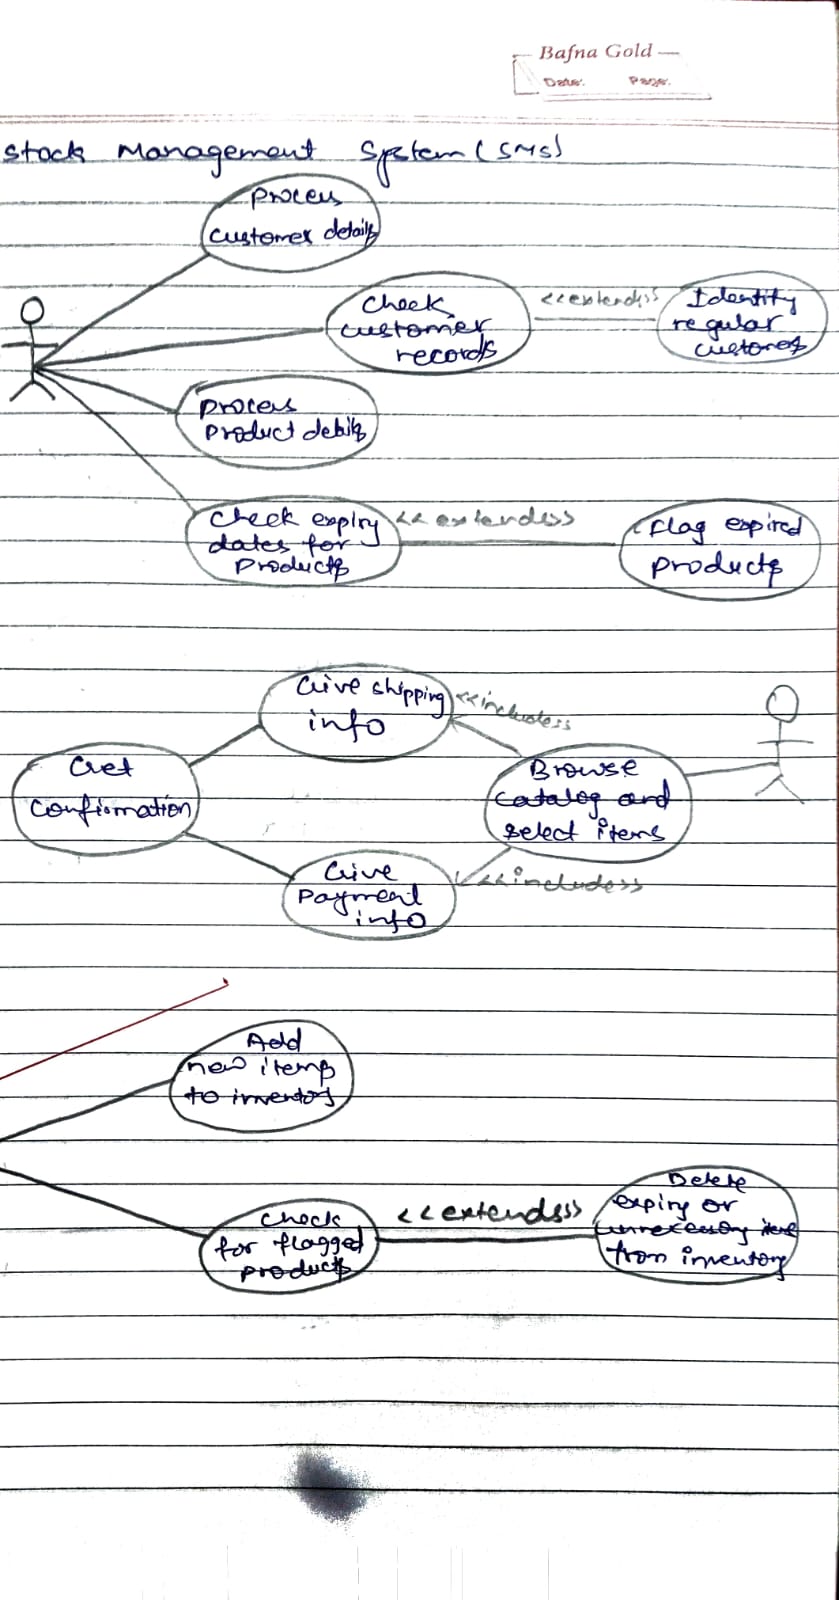 Bafna Gold
Date: Page:
Stock Management System (SMS)
Process
customer details
Check
customer
records
<<extends>>
Identity
regular
customers
Process
Product details
Check expiry
dates for
Products
<<extends>>
Flag expired
products
Give shipping
info
<<includes>>
Get
confirmation
Browse
catalog and
select items
Give
Payment
info
<<includes>>
Add
new items
to inventory
Check
for flagged
products
<<extends>>
Delete
expiry or
unnecessary items
from inventory